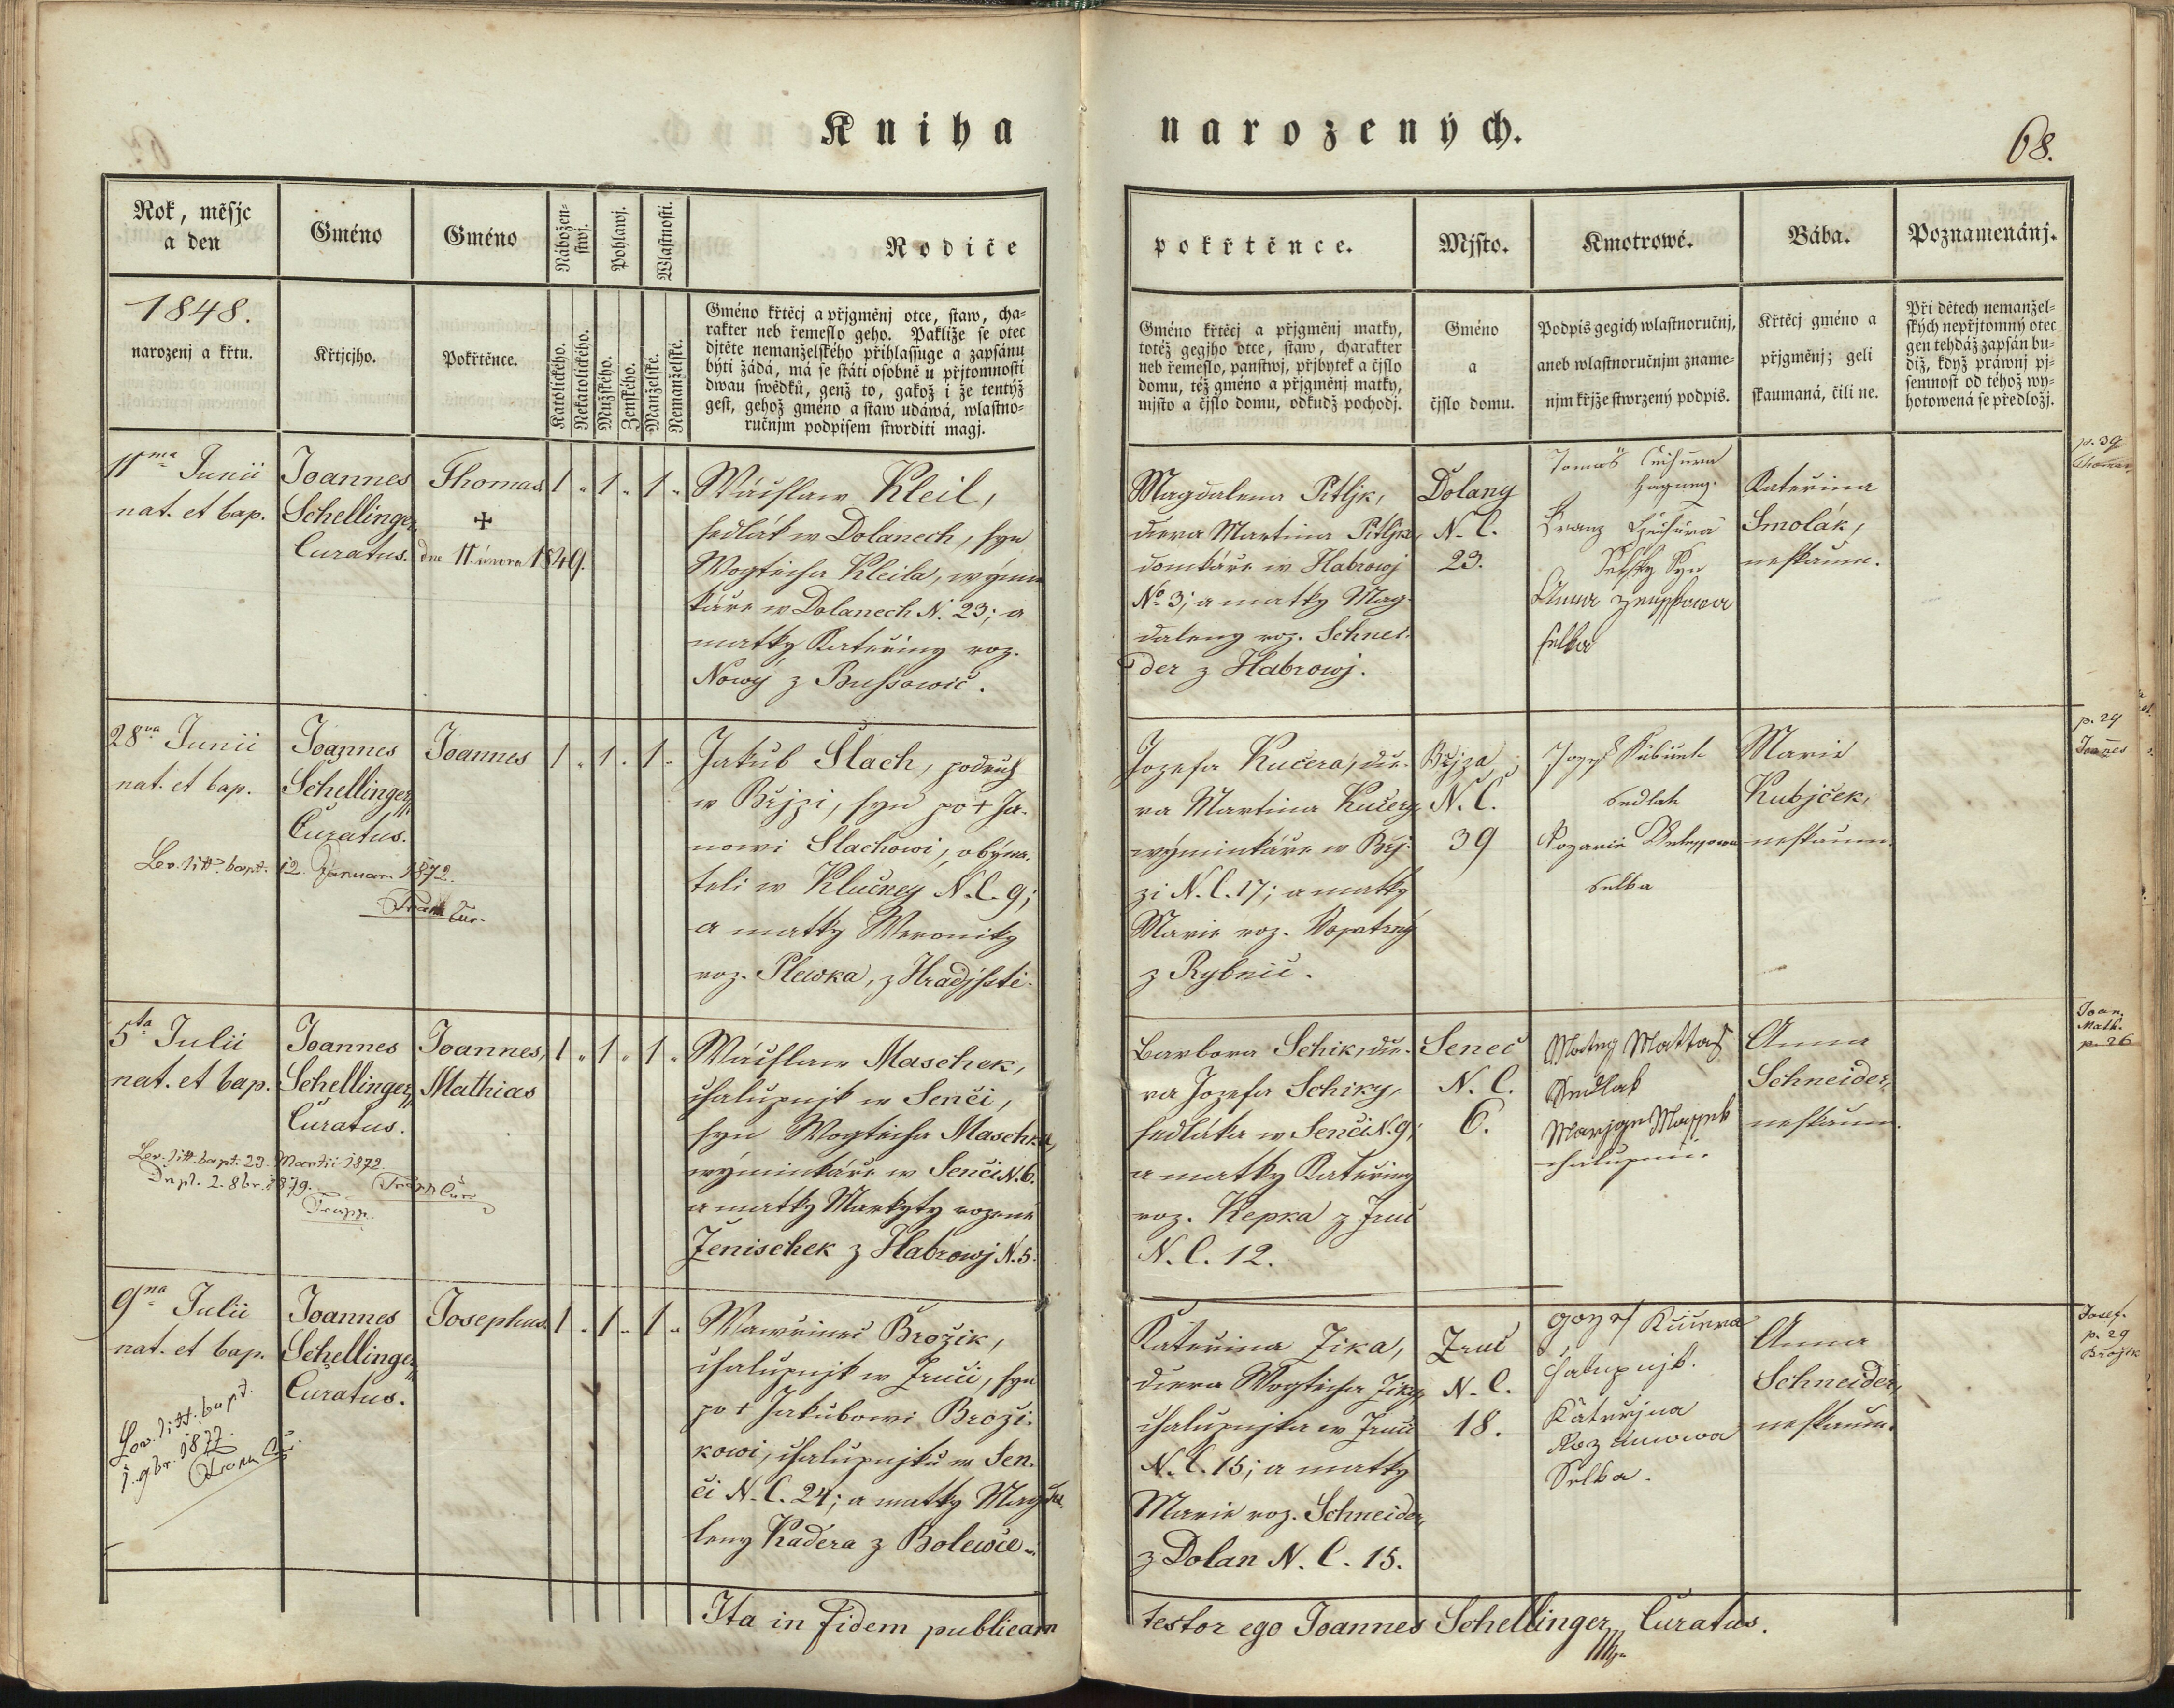 Kniha narozených.
68.
Rok, měsjc
a den
Gméno
Gméno
Nábožen-
stwj.
Pohlawj.
Wlastnosti.
Rodiče
pokřtěnce.
Mjsto.
Kmotrowé.
Bába.
Poznamenánj.
1848.
narozenj a křtu.
Křtjcjho.
Pokřtěnce.
Katolického.
Nekatolického.
Mužského.
Ženského.
Manželské.
Nemanželské.
Gméno křtěcj a přjgměnj otce, staw, cha-
rakter neb řemeslo geho. Pakliže se otec
djtěte nemanželského přihlassuge a zapsánu
býti žádá, má se státi osobně u přjtomnosti
dwau swědků, genž to, gakož i že tentýž
gest, gehož gméno a staw udáwá, wlastno-
ručnjm podpisem stwrditi magj.
Gméno křtěcj a přjgměnj matky,
totéž gegjho otce, staw, charakter
neb řemeslo, panstwj, přjbytek a čjslo
domu, též gméno a přjgměnj matky,
mjsto a čjslo domu, odkudž pochodj.
Gméno
a
čjslo domu.
Podpis gegich wlastnoručnj,
aneb wlastnoručnjm zname-
njm křjže stwrzený podpis.
Křtěcj gméno a
přjgměnj; geli
skaumaná, čili ne.
Při dětech nemanžel-
ských nepřjtomný otec
gen tehdáž zapsán bu-
diž, když práwnj pj-
semnost od téhož wy-
hotowená se předložj.
11ma Junii
nat. et bap.
Joannes
Schellinger
Curatus.
Thomas
✝
dne 11. února 1849.
1 „ 1 „ 1 „
Wácslaw Kleil,
sedlák w Dolanech, syn
Wogtěcha Kleila, wýmin
káře w Dolanech N. 23; a
matky Kateřiny roz.
Nowý z Bussowic.
Magdalena Pitljk,
dcera Martina Pitljka,
domkáře w Habrowj
No 3; a matky Mag-
daleny roz. Schnei-
der z Habrowj.
Dolany
N. C.
23.
Tomaš
Franz
Selsky Syn
Anna
selka
Kateřina
Smolák,
neskaum.
p. 39
Thomas
28va Junii
nat. et bap.
Joannes
Schellinger
Curatus.
Lev. litt. bapt. 12. Januar. 1872.
Joannes
1 „ 1 „ 1 „
Jakub Slach, podruh
w Břjzi, syn po + Ja-
nowi Slachowi, obýwa-
teli w Klučney N. C. 9;
a matky Weroniky
roz. Plewka, z Hradjssti.
Jozefa Kučera, dce-
ra Martina Kučery
wýminkáře w Břj-
zi N. C. 17; a matky
Marie roz. Kopatzný
z Rybnic.
Břjza
N. C.
39
Jozef
Sedlak
Selka
Marie
Kubjček,
neskaum.
p. 29
Joannes
5ta Julii
nat. et bap.
Joannes
Schellinger
Curatus.
Lev. litt. bapt. 23. Martii 1872.
Dupl. 2. 8br. 1879.
Joannes,
Mathias
1 „ 1 „ 1 „
Wácslaw Maschek,
chalupnjk w Senči,
syn Wogtěcha Maschka,
wýminkáře w Senči N. 6.
a matky Markyty rozené
Ženischek z Habrowj N. 5.
Barbora Schik, dce-
ra Jozefa Schiky,
sedláka w Senči N. 9;
a matky Kateřiny
roz. Kepka z Zruč
N. C. 12.
Seneč
N. C.
6.
Matěg Mattas
Sedlak
Marjge Massek
Anna
Schneider,
neskaum.
Joan.
Math.
p. 26
9na Julii
nat. et bap.
Joannes
Schellinger
Curatus.
Lev. litt. bapt.
1. 9br. 1877.
Josephus
1 „ 1 „ 1 „
Wawřinec Brožik,
chalupnjk w Zruči, syn
po + Jakubowi Broži-
kowi, chalupnjku w Sen-
či N. C. 24; a matky Magda-
leny Kadera z Bolewce.
Kateřina Jika,
dcera Wogtěcha Jiky
chalupnjka w Zruči
N. C. 15; a matky
Marie roz. Schneider,
z Dolan N. C. 15.
Zruč
N. C.
18.
Gozef Kučera
Chalupnjk.
Kateřjna
Selka.
Anna
Schneider,
neskaum.
Josef.
p. 29
Brožik
Ita in fidem publicam testor ego Joannes Schellinger, Curatus.